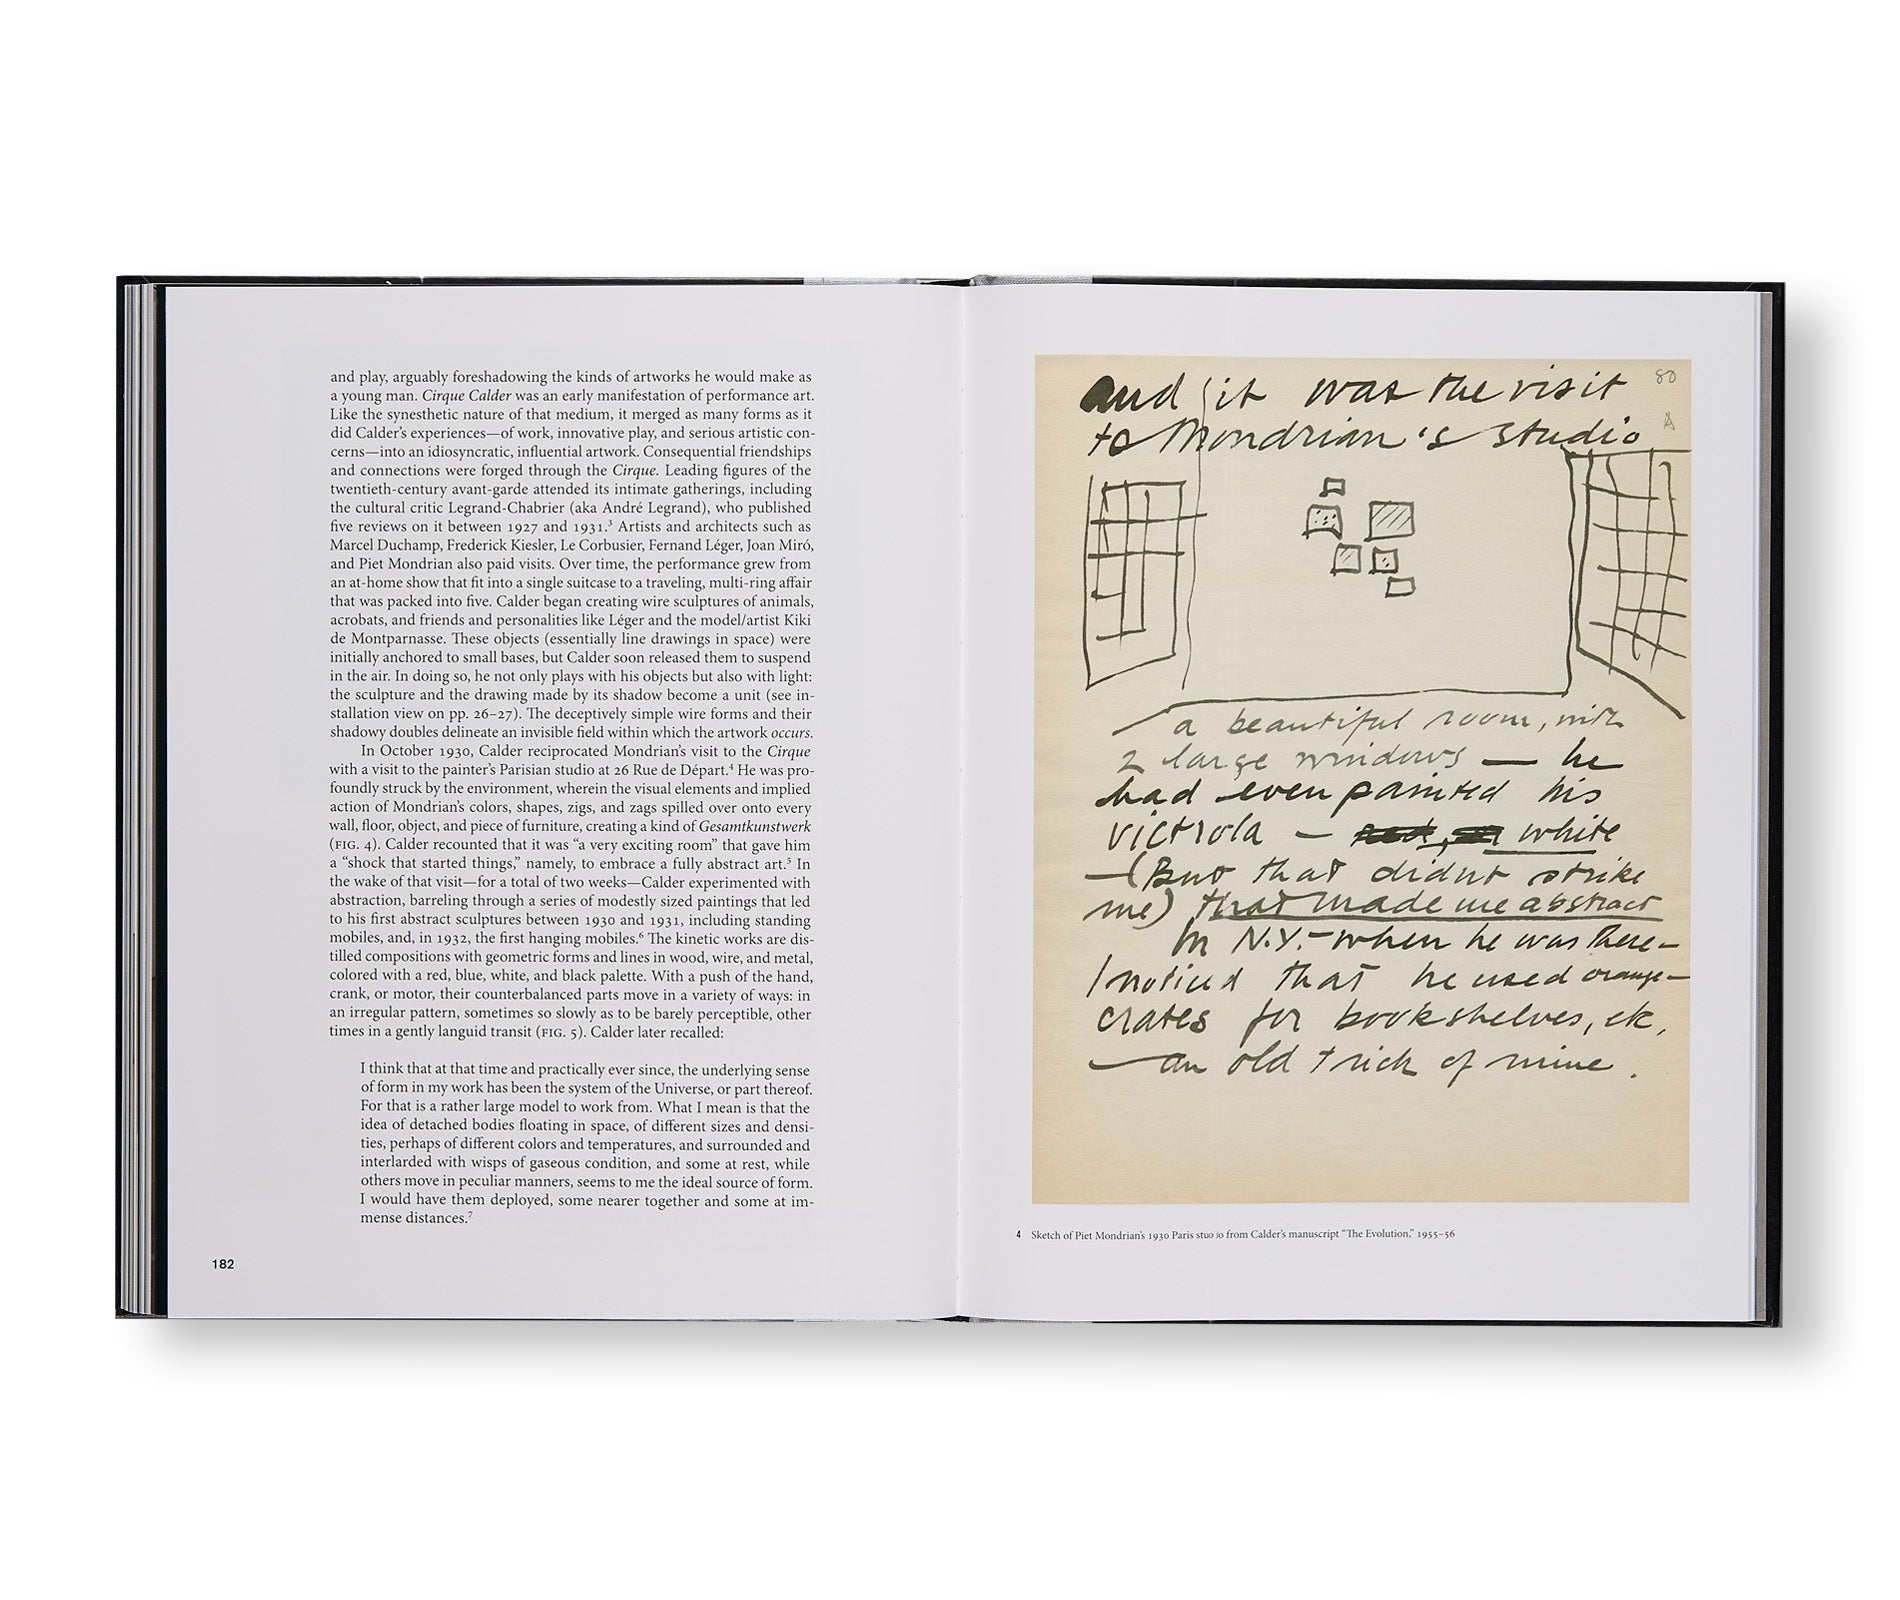 and play, arguably foreshadowing the kinds of artworks he would make as
a young man. Cirque Calder was an early manifestation of performance art.
Like the synesthetic nature of that medium, it merged as many forms as it
did Calder's experiences—of work, innovative play, and serious artistic con-
cerns—into an idiosyncratic, influential artwork. Consequential friendships
and connections were forged through the Cirque. Leading figures of the
twentieth-century avant-garde attended its intimate gatherings, including
the cultural critic Legrand-Chabrier (aka André Legrand), who published
five reviews on it between 1927 and 1931.³ Artists and architects such as
Marcel Duchamp, Frederick Kiesler, Le Corbusier, Fernand Léger, Joan Miró,
and Piet Mondrian also paid visits. Over time, the performance grew from
an at-home show that fit into a single suitcase to a traveling, multi-ring affair
that was packed into five. Calder began creating wire sculptures of animals,
acrobats, and friends and personalities like Léger and the model/artist Kiki
de Montparnasse. These objects (essentially line drawings in space) were
initially anchored to small bases, but Calder soon released them to suspend
in the air. In doing so, he not only plays with his objects but also with light:
the sculpture and the drawing made by its shadow become a unit (see in-
stallation view on pp. 26–27). The deceptively simple wire forms and their
shadowy doubles delineate an invisible field within which the artwork occurs.
In October 1930, Calder reciprocated Mondrian's visit to the Cirque
with a visit to the painter's Parisian studio at 26 Rue de Départ.⁴ He was pro-
foundly struck by the environment, wherein the visual elements and implied
action of Mondrian's colors, shapes, zigs, and zags spilled over onto every
wall, floor, object, and piece of furniture, creating a kind of Gesamtkunstwerk
(FIG. 4). Calder recounted that it was "a very exciting room" that gave him
a "shock that started things," namely, to embrace a fully abstract art.⁵ In
the wake of that visit—for a total of two weeks—Calder experimented with
abstraction, barreling through a series of modestly sized paintings that led
to his first abstract sculptures between 1930 and 1931, including standing
mobiles, and, in 1932, the first hanging mobiles.⁶ The kinetic works are dis-
tilled compositions with geometric forms and lines in wood, wire, and metal,
colored with a red, blue, white, and black palette. With a push of the hand,
crank, or motor, their counterbalanced parts move in a variety of ways: in
an irregular pattern, sometimes so slowly as to be barely perceptible, other
times in a gently languid transit (FIG. 5). Calder later recalled:
I think that at that time and practically ever since, the underlying sense
of form in my work has been the system of the Universe, or part thereof.
For that is a rather large model to work from. What I mean is that the
idea of detached bodies floating in space, of different sizes and densi-
ties, perhaps of different colors and temperatures, and surrounded and
interlarded with wisps of gaseous condition, and some at rest, while
others move in peculiar manners, seems to me the ideal source of form.
I would have them deployed, some nearer together and some at im-
mense distances.⁷
182
80
A
and it was the visit
to Mondrian's studio
a beautiful room, with
2 large windows — he
had even painted his
victrola — white
—(But that didnt strike
me) that made me abstract
In N.Y. – when he was there –
I noticed that he used orange-
crates for bookshelves, etc.
— an old trick of mine.
4 Sketch of Piet Mondrian's 1930 Paris stuo io from Calder's manuscript "The Evolution," 1955–56